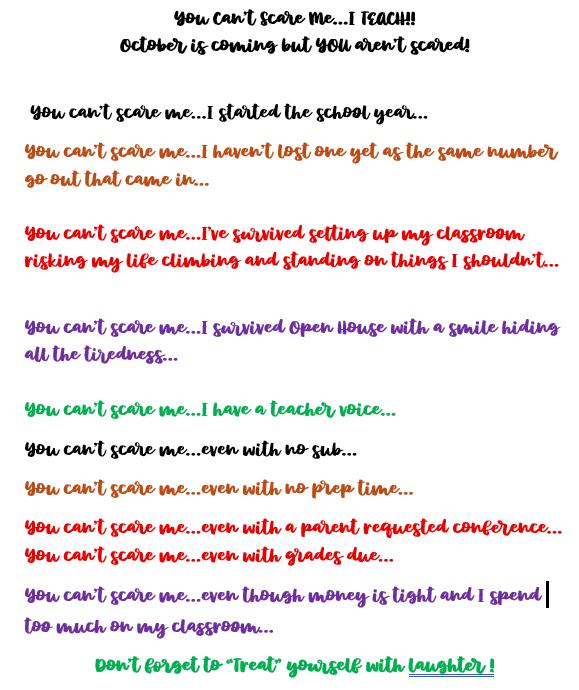 You Can't Scare Me...I TEACH!!
October is coming but YOU aren't scared!
You can't scare me...I started the school year...
You can't scare me...I haven't lost one yet as the same number
go out that came in...
You can't scare me...I've survived setting up my classroom
risking my life climbing and standing on things I shouldn't...
You can't scare me...I survived Open House with a smile hiding
all the tiredness...
You can't scare me...I have a teacher voice...
You can't scare me...even with no sub...
You can't scare me...even with no prep time...
You can't scare me...even with a parent requested conference...
You can't scare me...even with grades due...
You can't scare me...even though money is tight and I spend
too much on my classroom...
Don't forget to "Treat" yourself with laughter !